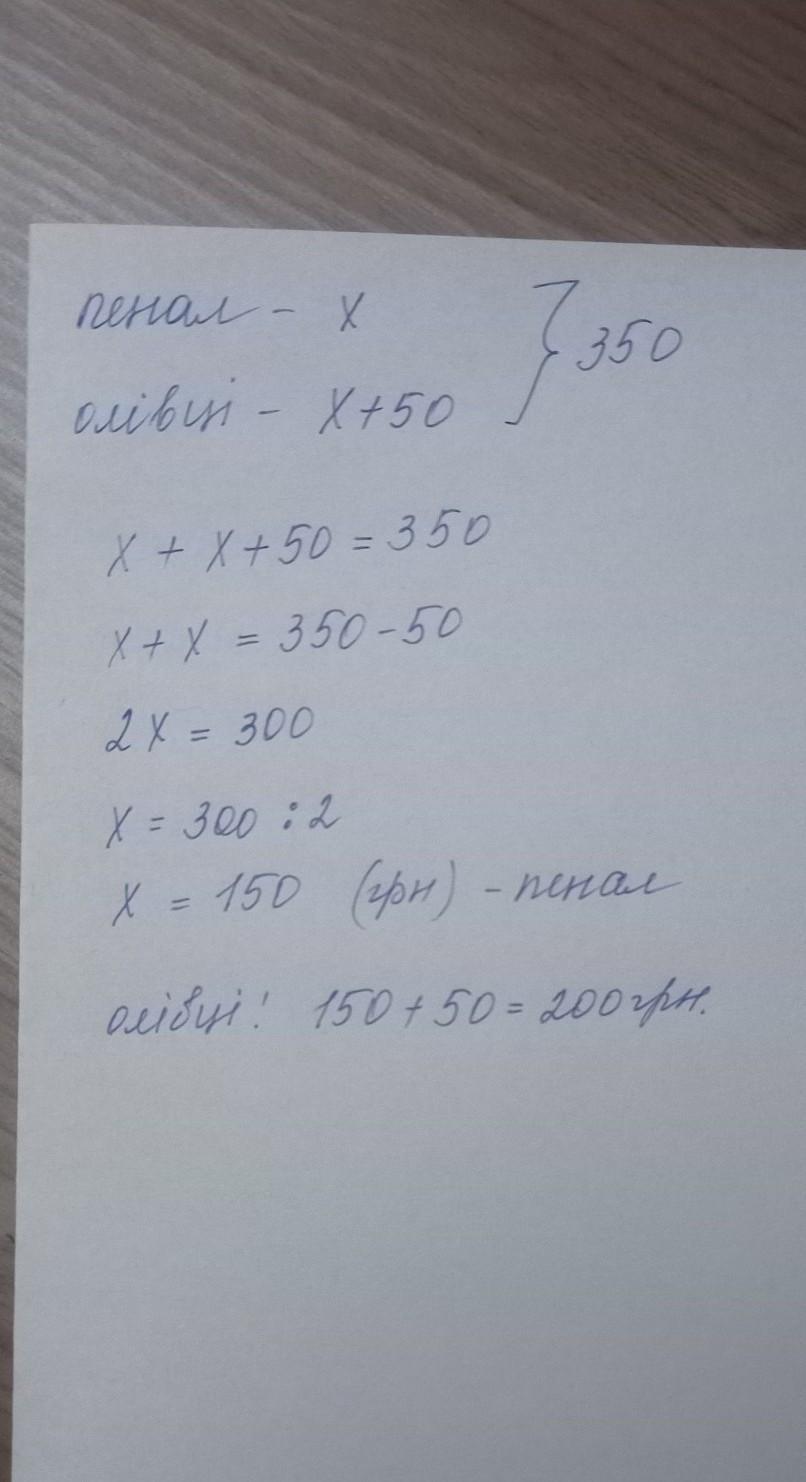 пенал - x } 350
олівці - x+50
x + x+50 = 350
x + x = 350-50
2x = 300
x = 300 : 2
x = 150 (грн) - пенал
олівці! 150+50=200грн.